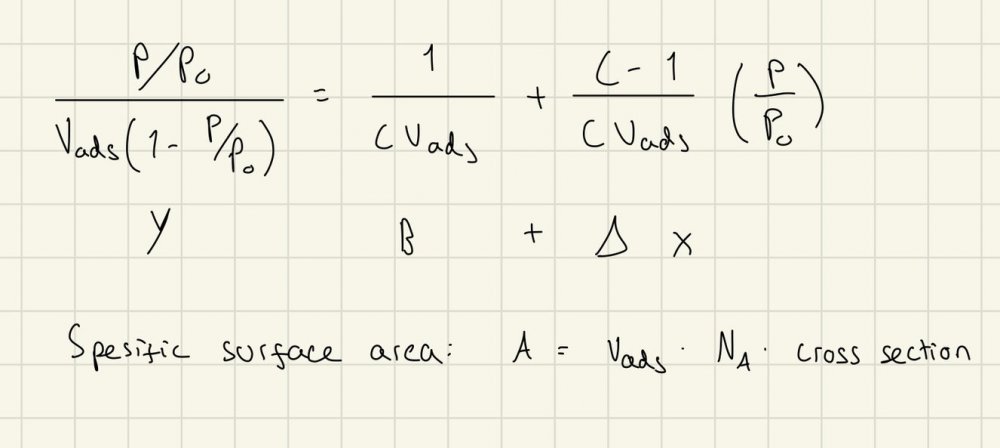 P/P₀ / Vads(1 - P/P₀) = 1 / C Vads + C - 1 / C Vads (P / P₀)
y B + Δ x
Spesific surface area: A = Vads · N_A · cross section